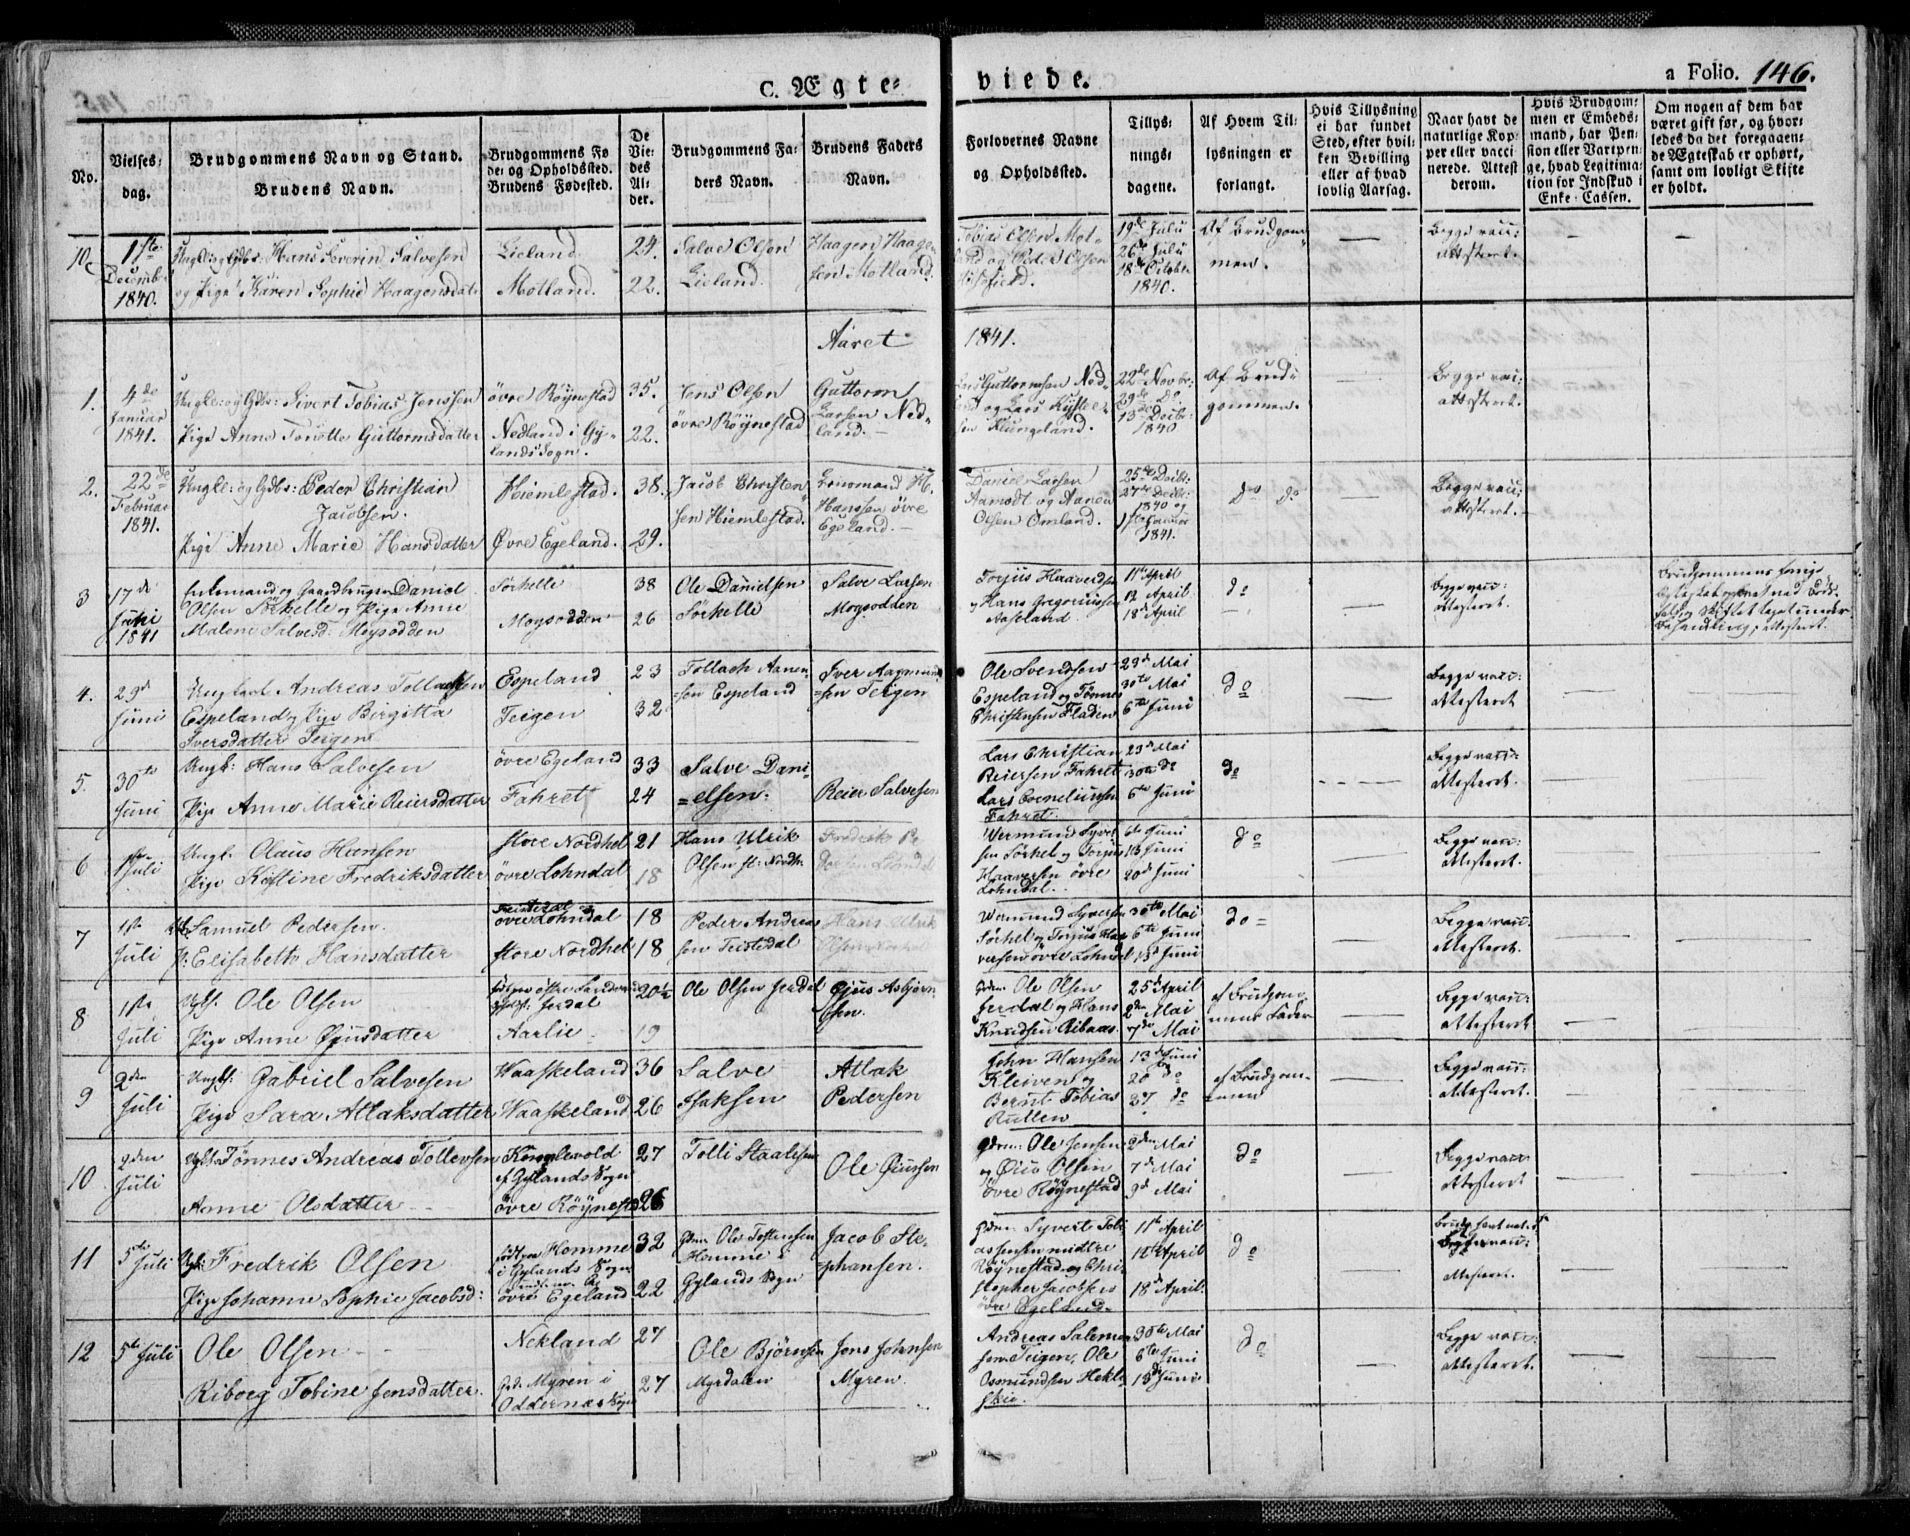 C. Ægte-
viede.
a Folio. 146.
No.
Vielses-
dag.
Brudgommens Navn og Stand.
Brudens Navn.
Brudgommens Fø
de- og Opholdssted.
Brudens Fødested.
De
Vie-
des
Al-
der.
Brudgommens Fa-
ders Navn.
Brudens Faders
Navn.
Forlovernes Navne
og Opholdssted.
Tillys-
nings-
dagene.
Af Hvem Til-
lysningen er
forlangt.
Hvis Tillysning
ei har fundet
Sted, efter hvil-
ken Bevilling
eller af hvad
lovlig Aarsag.
Naar havt de
naturlige Kop-
per eller vacci
nerede. Attest
derom.
Hvis Brudgom-
men er Embeds-
mand, har Pen-
sion eller Vartpen-
ge, hvad Legitima-
tion for Indskud i
Enke-Cassen.
Om nogen af dem har
været gift før, og hvor-
ledes da det foregaaen-
de Ægteskab er ophørt,
samt om lovligt Skifte
er holdt.
10.
1ste
Decemb.
1840.
Ungk: og Gdbr: Hans Severin Salvesen
og Pige Karen Sophie Haagensdatr
Lieland
Motland.
24.
22.
Salve Olsen
Lieland.
Haagen Haagen
sen Motland.
Tobias Olsen Mot-
land og Peder Olsen
19de Julii
26de Julii
18de October
1840.
Af Brudgom-
men.
Begge vacc:
attesteret.
Aaret
1841.
1.
4de
Januar
1841.
Ungk: og Gdbr: Sivert Tobias Jenssen
Pige Anne Torjette Guttormsdatter
øvre Röynestad
Nedland i Gy-
lands Sogn.
35.
22.
Jens Olsen
øvre Röynestad
Guttorm
Larsen Ned-
land.
Guttormsen Ned-
land og Lars
sen Klungeland.
22de Novbr:
29de do
13de Decbr:
1840
Af Brud-
gommen.
Begge vacc:
attesteret.
2.
22de
Februar
1841.
Ungk: og Gdbr: Peder Christian
Jacobsen.
Pige Anne Marie Hansdatter
Hiemlestad.
Øvre Egeland.
38.
29.
Jacob Christen-
sen Hiemlestad.
H.
Hanssen øvre
Egeland.
Daniel Larsen
Aamodt og Aanen
Olsen Omland.
25de Decbr:
27de Decbr:
1840 og
1ste Januar
1841.
do do
Begge vacc:
attesteret.
3
17de
Juni
1841
Enkemand og Gaardbruger Daniel
Olsen Sörhelle og Pige Anne
Malene Salvesd. Moysodden
Sörhelle
Moysodden
38
26
Ole Danielsen
Sörhelle
Salve Larsen
Moysodden
Torjus Haaverdsen
og Hans Gregoriussen
Aaseland
11te April
12 April
18de April
do
Begge vacc:
attesteret.
Brudgommens forrige
Ægteskab ophævet ved Död-
fald og Skiftet taget under
Behandling, attesteret.
4.
29de
Juni
Ungkarl Andreas Tollachsen
Espeland og Pige Birgitta
Iversdatter Teigen
Espeland
Teigen
23
32
Tollach Aanen-
sen Espeland
Iver Aagmund-
sen Teigen
Ole Svendsen
Espeland og Tönnes
Christensen Fladen
29de Mai
30te Mai
6te Juni
do
Begge vacc:
attesteret
5.
30te
Juni
Ungk: Hans Salvesen
Pige Anne Marie Reiersdatter
övre Egeland
Fahret
33
24
Salve Dani-
elsen.
Reier Salvesen
Lars Christian
Reiersen Fahret
Lars Corneliussen
Fahret.
23de Mai
30te do
6te Juni
do
Begge vacc:
attesteret.
6
1ste
Juli
Ungk. Olaus Hansen
Pige Kistine Fredriksdatter
store Nordhel
övre Lohndal
21
18
Hans Ulrik
Olsen st: Nordh.
Vermund Syver
sen Sörhel og Torjus
Haaversen övre
Lohndal.
6te Juni
13 Juni
20de Juni
do
Begge vacc:
attesteret.
7
1ste
Juli
Samuel Pedersen.
P: Elisabeth Hansdatter
övre Lohndal
store Nordhel
18
18
Peder Andreas
sen Teistedal
Hans Ulrik
Olsen Nordhel
Vermund Syversen
Sörhel og Torjus Haa-
versen övre Lohndal
30te Mai
6te Juni
13de Juni
do
Begge vacc:
attesteret.
8
1ste
Juli
Ugk. Ole Olsen
Pige Anne Öjusdatter
Jerdal
Aarlie
20½
19
Ole Olsen Jerdal
Öjus Asbjørn-
sen.
Gdm. Ole Olsen
Jerdal og Hans
Knudsen Ribaas.
25de April
2den Mai
7de Mai
af Brudgom
mens Fader
Begge vacc:
attesteret
9
2den
Juli
Ungk. Gabriel Salvesen
Pige Sara Atlaksdatter
Waaskeland
Waaskeland
36
26
Salve
Isaksen
Atlak
Pedersen
John Hansen
Kleiven og
Bernt Tobias
Rutlen
13de Juni
20 do
27 do
af Brudgom-
men
Begge vacc:
attesteret.
10
2den
Juli
Tönnes Andreas Tollevsen
Anne Olsdatter
Konglevold
af Gylands Sogn
övre Röynestad
27
26
Tolli Staalesen
Ole Öiusen
Gdm. Ole Jensen
og Öius Olsen
övre Röynestad
2den Mai
7de Mai
9de Mai
do
Begge vacc:
attesteret.
11
5te
Juli
Ugk: Fredrik Olsen
Pige Johanne Sophie Jacobsd:
födt paa Homme
i Gylands Sogn
övre Egeland
32
22
Gdm. Ole Tostensen
Homme i
Gylands Sogn
Jacob Ste-
phansen.
Gdm. Syvert Tobi-
assen midtre
Röynestad og Chri-
stopher Jacobsen
övre Egeland.
11te April
12te April
18de April.
do
Begge vacc:
attesteret.
12
5te Juli
Ole Olsen
Riborg Tobine Jensdatter.
Nekland
Myren i
Oddernæs Sogn
27
27
Ole Björnsen
Myrdalen
Jens Johnsen
Myren.
Andreas Salemon
sen Teigen, Ole
Osmundsen Hekle
skie.
30te Mai
6te Juni
13de Juni
do
Begge vacc:
attesteret.